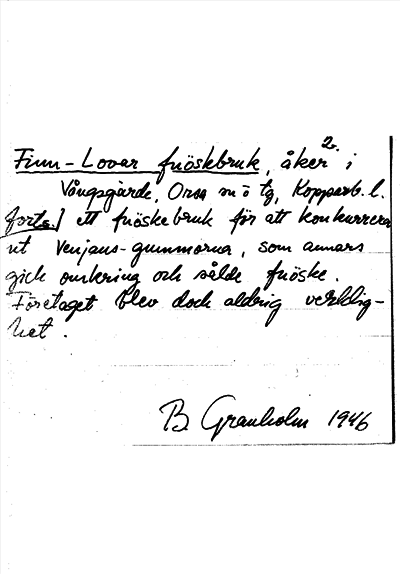 2.
Finn-Lovar fnöskbruk, åker i
Vångsgärde, Orsa sn o tg, Kopparb. l.
forts.] ett fnöskebruk för att konkurrera
ut Venjans-gummorna, som annars
gick omkring och sålde fnöske.
Företaget blev dock aldrig verklig-
het.
B. Granholm 1946